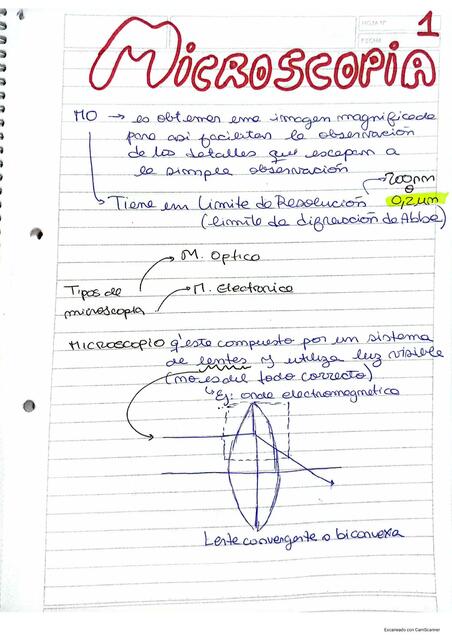 HOJA Nº
FECHA
1
MICROSCOPIA
MO → es obtener una imagen magnificada
para asi facilitar la observación
de los detalles que escapan a
la simple observación
200nm
o
0,2 um
Tiene un Limite de Resolución
(limite de difracción de Abbe)
M. Optico
Tipos de
microscopia
M. Electronico
MICROSCOPIO q' este compuesto por un sistema
de lentes y utiliza luz visible
(no es del todo correcto)
Ej: onda electromagnetica
Lente convergente o biconvexa
Escaneado con CamScanner